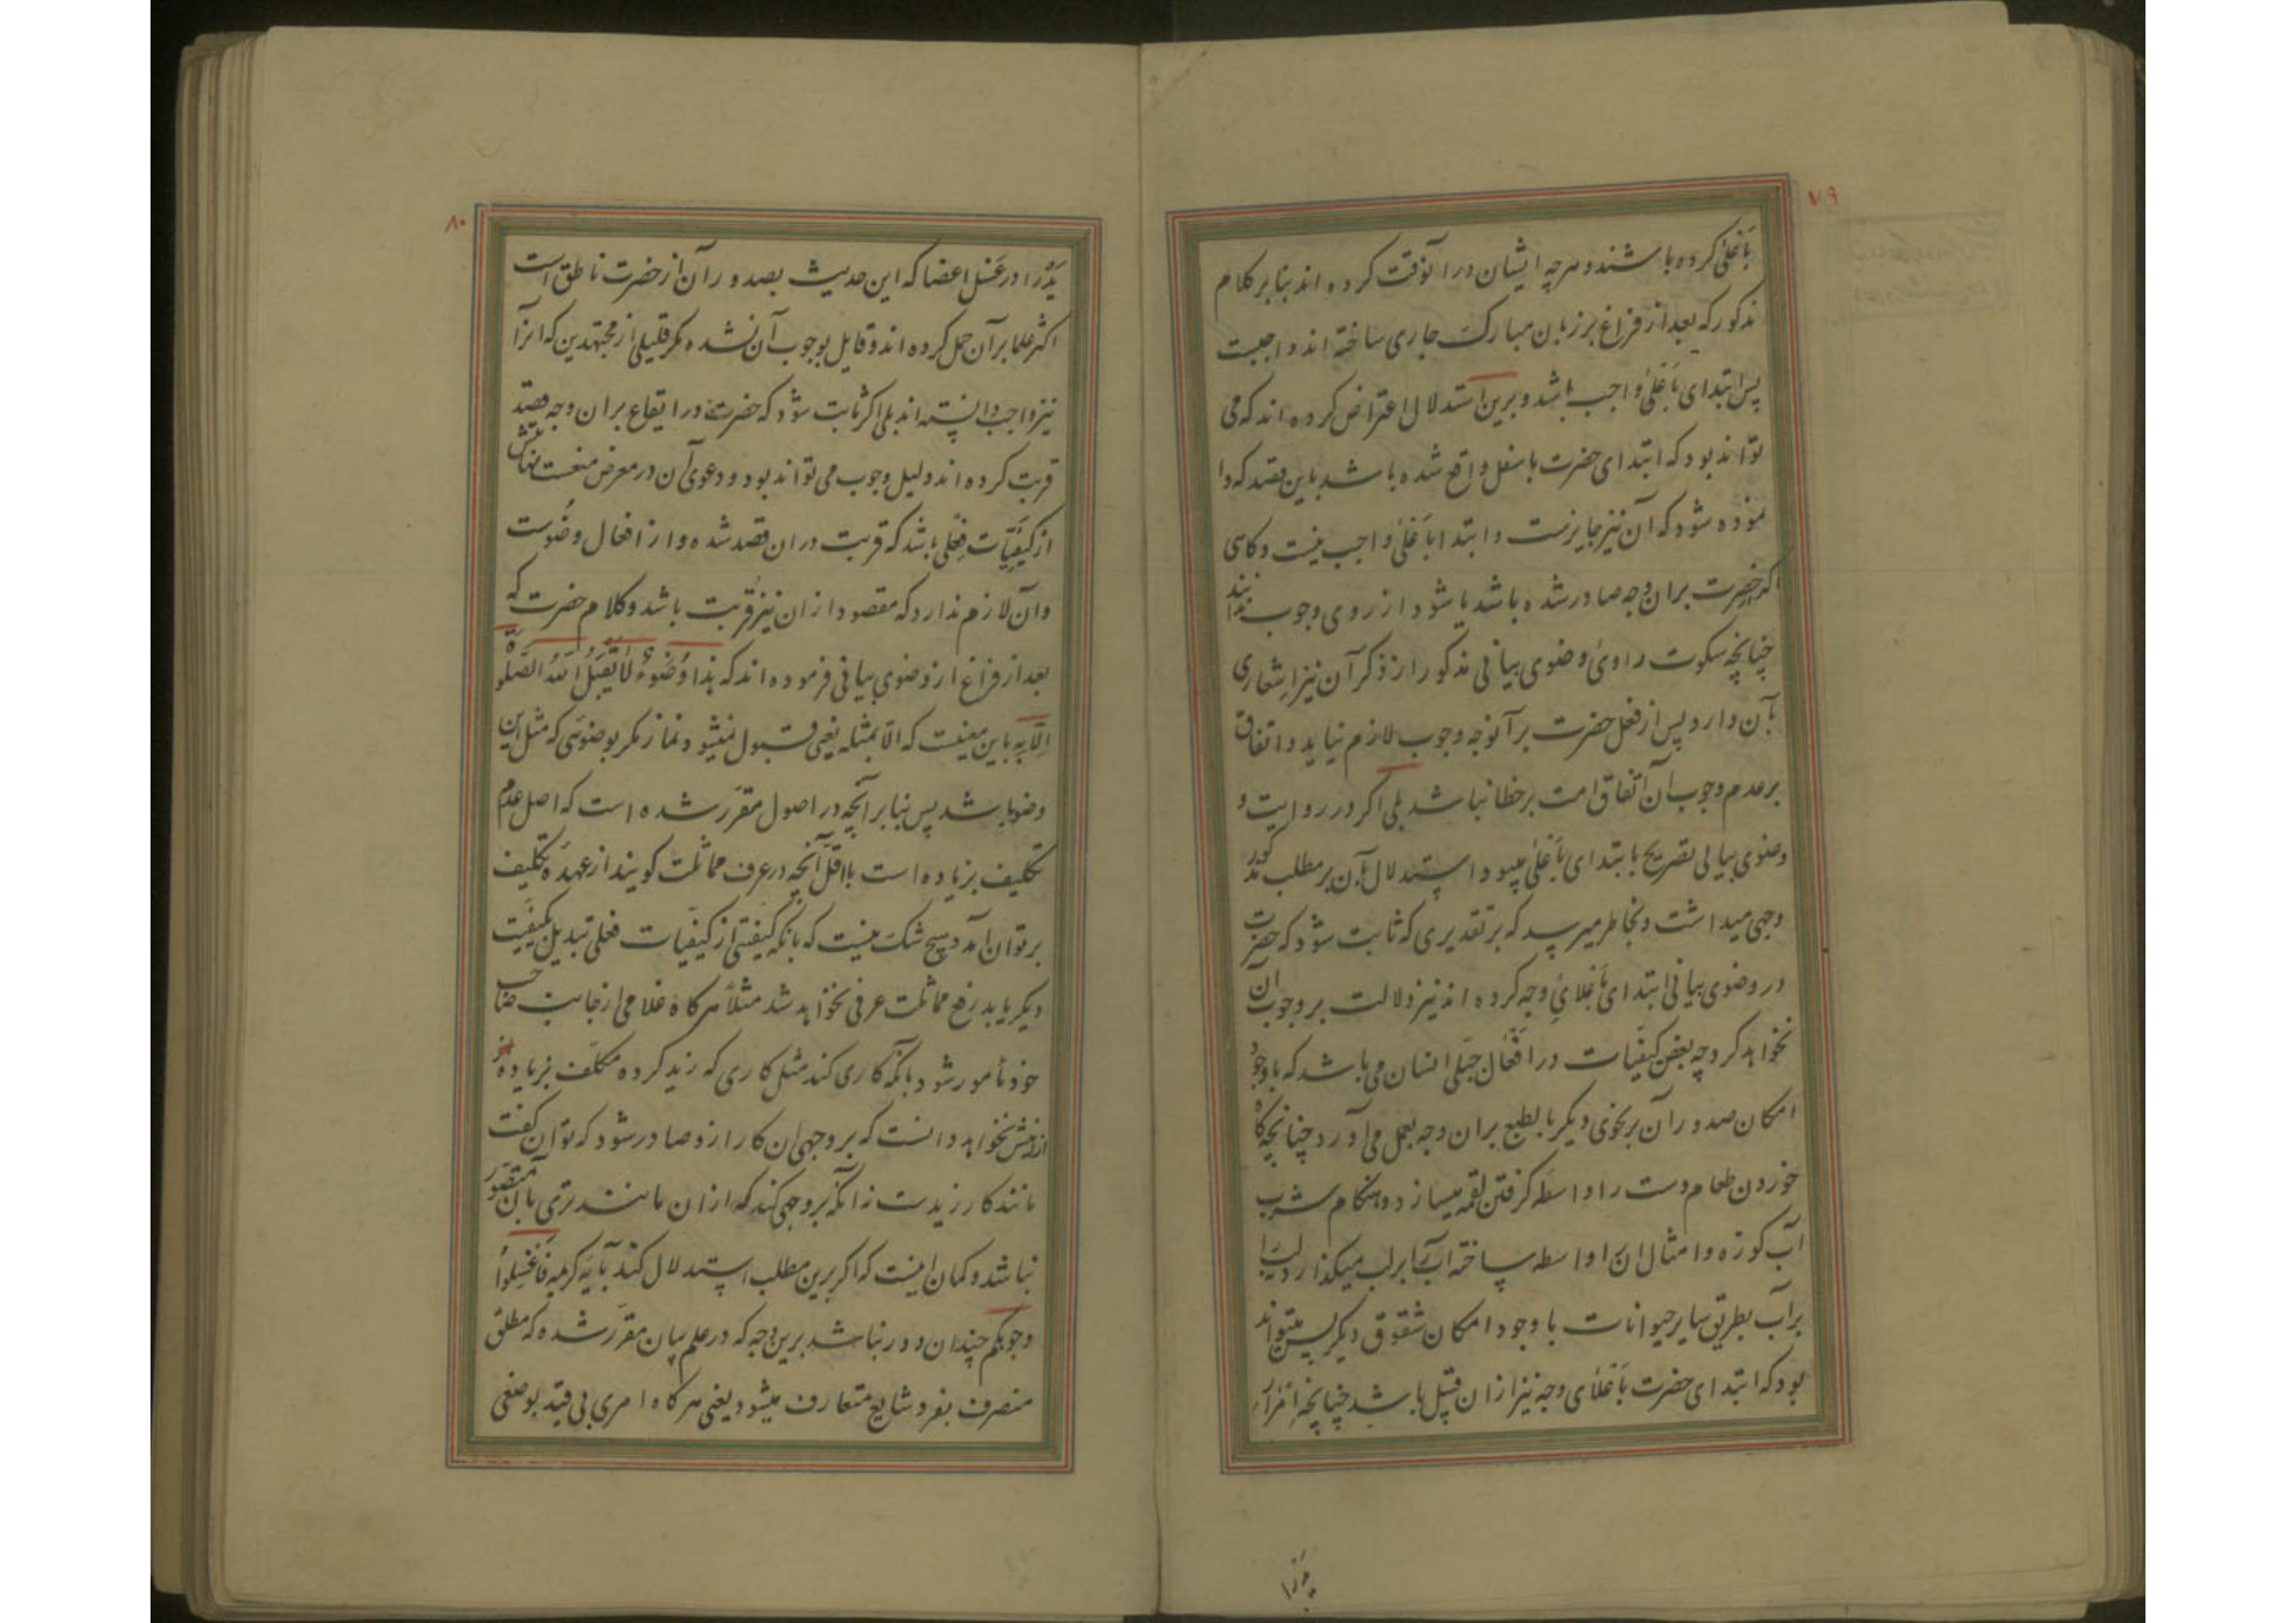 ٧٩
باَعلی کرده باشند و هرچه ایشان در آنوقت کرده اند بنا بر کلام
مذکور که بعد از فراغ بر زبان مبارک جاری ساخته اند واجبست
پس ابتدای باَعلی واجب باشد و برین استدلال اعتراض کرده اند که می
تواند بود که ابتدای حضرت باسفل واقع شده باشد باین قصد که وا
نموده شود که آن نیز جایزست و ابتدا باَعلی واجب نیست و کاهی
اکر حضرت بران وجه صادر شده باشد یا شود از روی وجوب نباشد
چنانچه سکوت راویِ وضوی بیانی مذکور از ذکر آن نیز اِشعاری
بآن دارد پس از فعل حضرت بر آنوجه وجوب لازم نیاید و اتفاق
بر عدم وجوب آن اتفاق امت بر خطا نباشد بلی اکر در روایت
وضوی بیانی تصریح بابتدای باَعلی میبود استدلال بآن بر مطلب مذکور
وجهی میداشت و بخاطر میرسد که بر تقدیری که ثابت شود که حضرت
در وضوی بیانی ابتدای باَعلایِ وجه کرده اند نیز دلالت بر وجوب آن
نخواهد کرد چه بعض کیفیّات در اَفعال جبلی انسان می باشد که باوجود
امکان صدور آن بر نحوی دیکر بالطبع بران وجه بعمل می آورد چنانچه کاه
خوردن طعام دست را واسطه کرفتن لقمه میسازد و هنکام شرب
آب کوزه و امثال آن را واسطه ساخته آب را بر لب میکذارد نه لب را
بر آب بطریق سایر حیوانات با وجود امکان شقوق دیکر پس میتواند
بود که ابتدای حضرت باَعلای وجه نیز از ان قبیل باشد چنانچه اِمرار
یَدرا
٨٠
یَدْ را در غَسل اعضا که این حدیث بصدور آن از حضرت ناطق است
اکثر علما بر آن حمل کرده اند و قایل بوجوب آن نشده مکر قلیلی از مجتهدین که انرا
نیز واجب دانسته اند بلی اکر ثابت شود که حضرت در ایقاع بران وجه قصد
قربت کرده اند دلیل وجوب می تواند بود و دعوی آن در معرض منعست نهایتش
از کیفیّات فِعلی باشد که قربت دران قصد شده و از افعال وضُوست
و آن لازم ندارد که مقصود از ان نیز قُربت باشد و کلام حضرت که
بعد از فراغ از وضوی بیانی فرموده اند که هذا وُضُوءٌ لا یَقبَلُ اللهُ الصَّلوةَ
اِلّا بِه باین معنیست که الّا بمثله یعنی قبول نمیشود نماز مکر بوضوئی که مثل این
وضو باشد پس بنا بر آنچه در اصول مقرّر شده است که اصل عدم
تکلیف بزیاده است بااقلّ آنچه در عرف مماثلت کویند از عهدهٔ تکلیف
بر توان آمد و هیچ شک نیست که بآنکه کیفیّتی از کیفیّات فعلی تبدیل بکیفیّت
دیکر یابد رفع مماثلت عرفی نخواهد شد مثلاً هرکاه غلامی از جانب صاحب
خود مأمور شود بآنکه کاری کند مثل کاری که زید کرده مکلّف بزیاده
ازینش نخواهد دانست که بر وجهی ان کار ازو صادر شود که توان کفت
مانند کار زیدست نه آنکه بر وجهی کند که از ان مانندتری بآن متصوّر
نباشد و کمان اینست که اکر برین مطلب استدلال کنند بآیه کریمه فَاغسِلُوا
وجوهکم چندان دور نباشد برین وجه که در علم بیان مقرّر شده که مطلق
منصرف بفرد شایع متعارف میشود یعنی هرکاه امری بی قید بوصفی